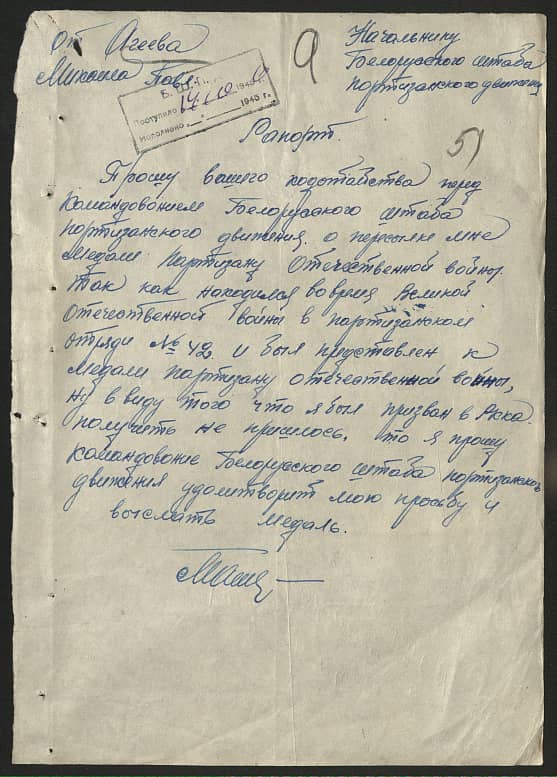 От Агеева
Михаила Павл
Начальнику
Белорусского штаба
партизанского движения
9
Поступило
Исполнено 194 г.
51
Рапорт.
Прошу вашего ходотайства перед
командованием Белорусского штаба
партизанского движения о пересылке мне
медали Партизану Отечественной войны.
Так как находился во время Великой
Отечественной войны в партизанском
отряди № 42 и был представлен к
медали партизану отечественной войны,
ну в виду того что я был призван в Ркка
получить не пришлось. то я прошу
командование Белорусского штаба партизанского
движения удолитворит мою просьбу и
выслать медаль.